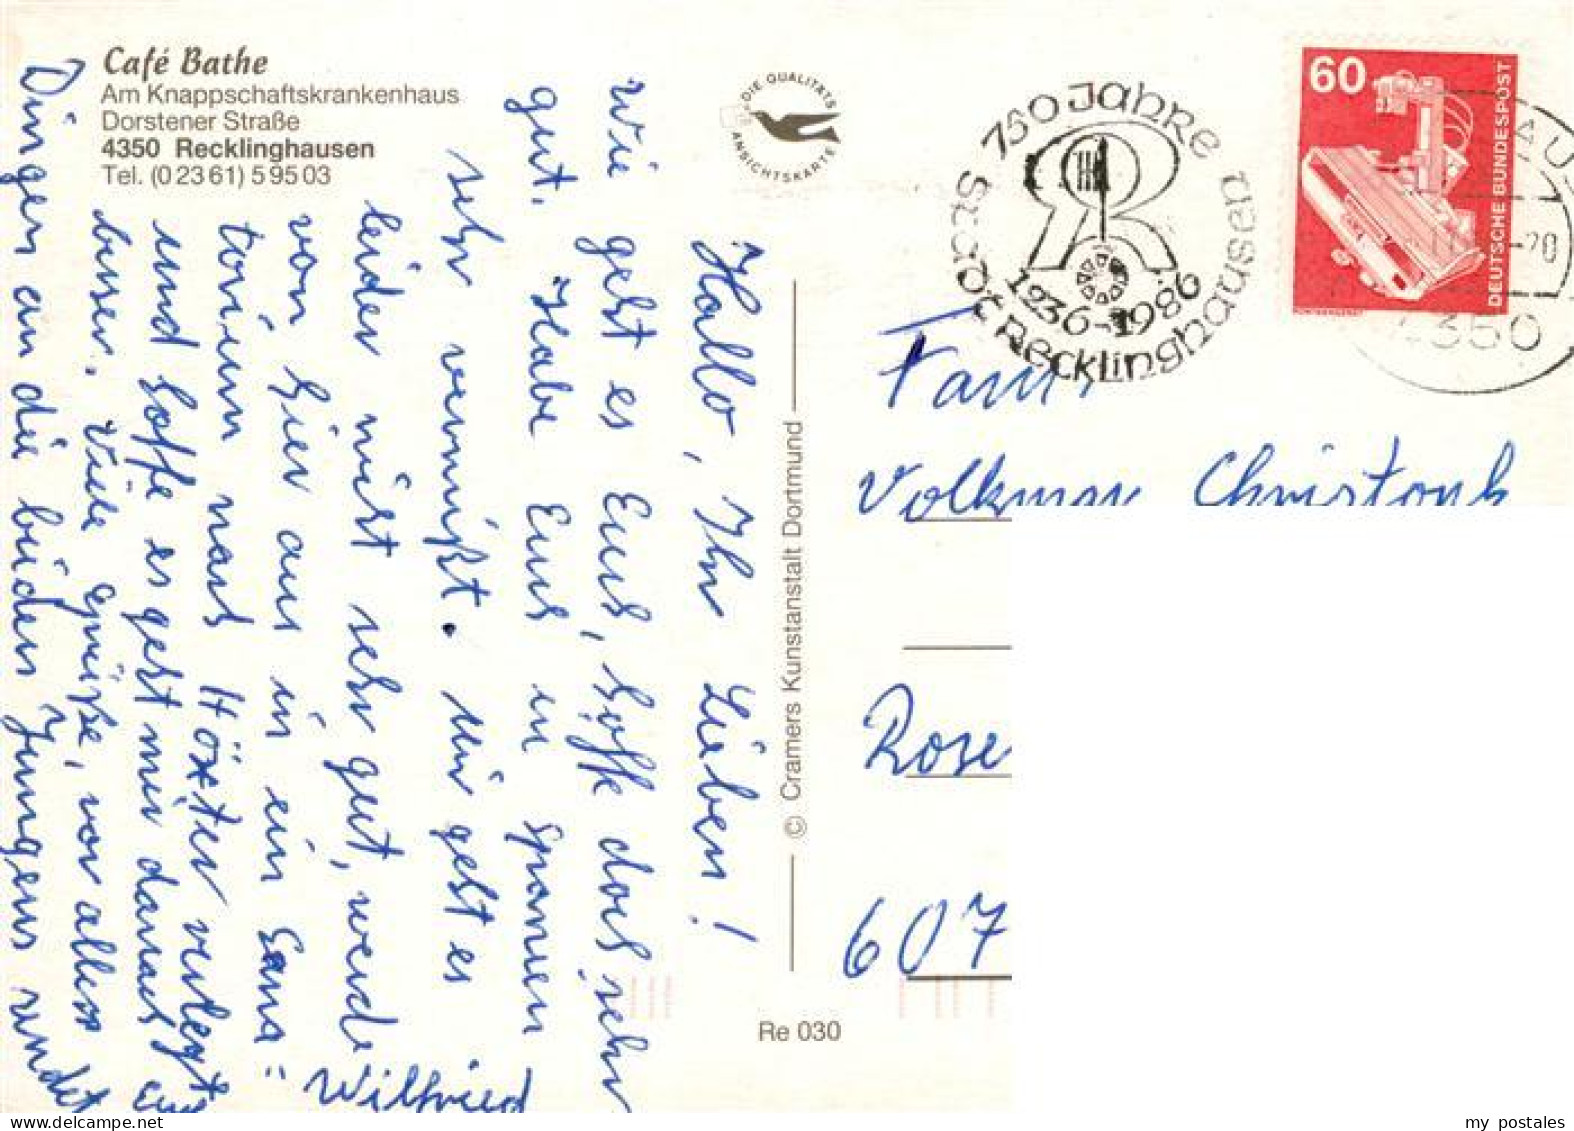 Café Bathe
Am Knappschaftskrankenhaus
Dorstener Straße
4350 Recklinghausen
Tel. (0 23 61) 5 95 03
DIE QUALITÄTS
ANSICHTSKARTE
750 Jahre
Stadt Recklinghausen
1236-1986
60
DEUTSCHE BUNDESPOST
4350
Hallo, Ihr Lieben!
Wie geht es Euch, hoffe doch sehr
gut. Habe Euch in Spanien
sehr vermißt. Mir geht es
leider nicht sehr gut, werde
von hier aus in ein Sana=
torium nach Höxter verlegt
und hoffe es geht mir danach
besser. Viele Grüße, vor allen
Dingen an die beiden Jungens sendet
Euch
Wilfried
© Cramers Kunstanstalt Dortmund
Re 030
Fam.
Volkmar Christoph
Rose
607
my postales